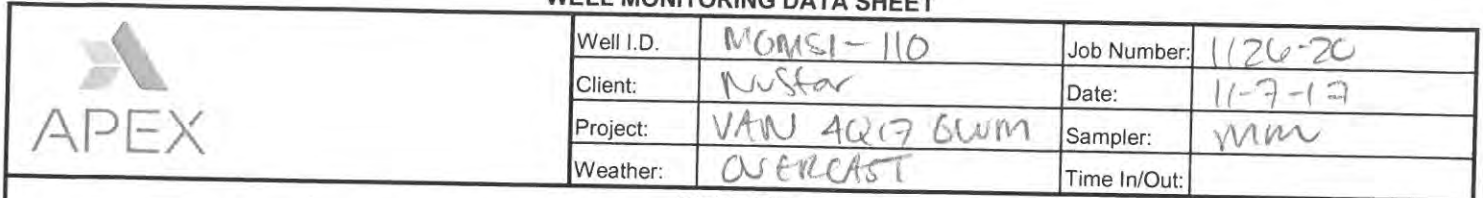 WELL MONITORING DATA SHEET
APEX
Well I.D. MGMS1-110 Job Number: 1126-20
Client: NuStar Date: 11-7-17
Project: VAN 4Q17 GWM Sampler: MM
Weather: OVERCAST Time In/Out: